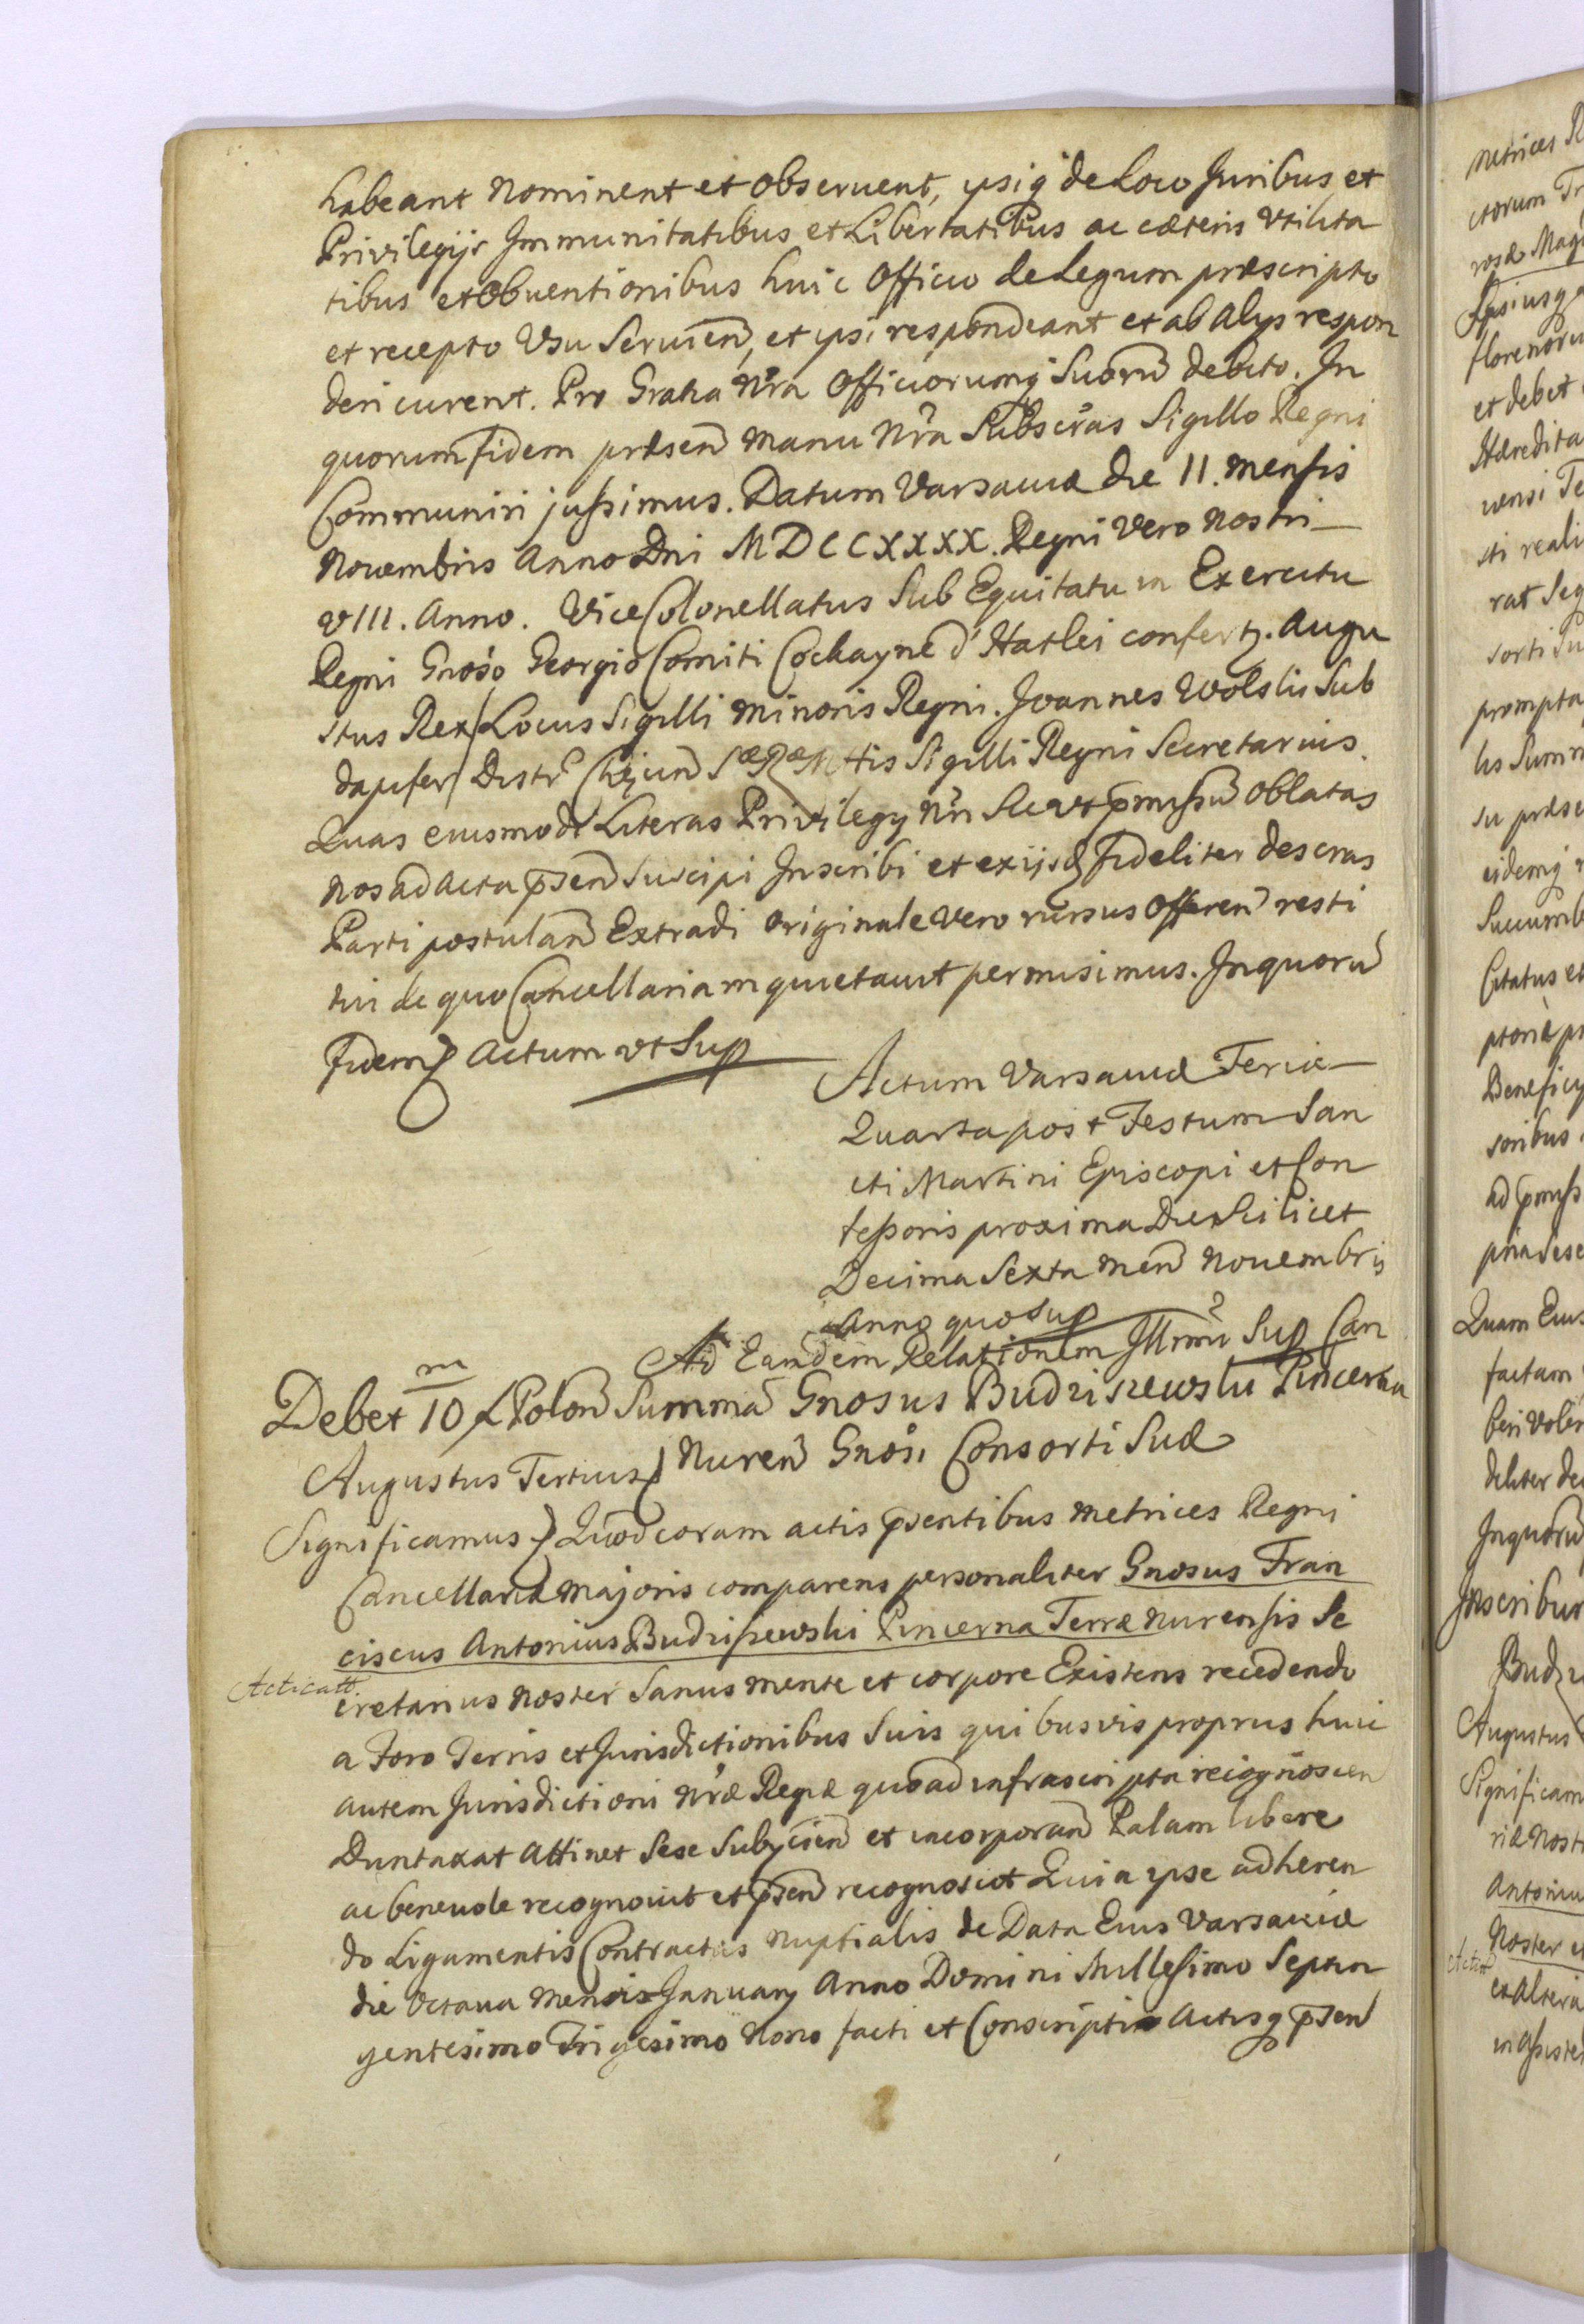 habeant nominent et observent, ipsiq de Loco Juribus et
Privilegijs Immunitatibus et Libertatibus ac cæteris Utilita
tibus et Obventionibus huic Officio de Legum præscripto
et recepto Usu Servien, et ipsi respondeant et ab Alijs respon
deri curent. Pro Gratia Nra Officiorumq Suoru debito. In
quorum fidem præsen manu Nra Subscras Sigillo Regni
Communiri jussimus. Datum Varsaviæ die 11. Mensis
Novembris Anno Dni MDCCXXXX. Regni Vero Nostri
VIII. Anno. Vice Colonellatus Sub Equitatu in Exercitu
Regni Gnoso Georgio Comiti Cockayne d'Hatlei confertz. Augu
stus Rex Locus Sigilli Minoris Regni. Joannes Wolski Sub
dapifer Distr Chęcin Sæ Ræ Mttis Sigilli Regni Secretarius.
Quas eiusmodi Literas Privilegij Nri Sicut pmissu Oblatas
Nos ad Acta psen Suscipi Inscribi et ex ijsd fideliter descras
Parti postulan Extradi Originale Vero rursus Offeren resti
tui de quo Cancellariam quietavit permisimus. In quoru
fidem Actum ut Sup
Actum Varsaviæ Feria
Quarta post Festum San
cti Martini Episcopi et Con
fessoris proxima Die Scilicet
Decima Sexta Men Novembris
Anno quo Sup
Ad Eandem Relationem Illrmi Sup Can
m
Debet 10 f Polon Summa Gnosus Budziszewski Pincerna
Nuren Gnosæ Consorti Suæ
Augustus Tertius
Significamus Quod coram actis psentibus Metrices Regni
Cancellariæ Majoris comparens personaliter Gnosus Fran
ciscus Antonius Budziszewski Pincerna Terræ Nurensis Se
Acticatt
cretarius Noster Sanus mente et corpore Existens recedendo
a Foro Terris et Jurisdictionibus Suis quibusvis proprijs huic
autem Jurisdictioni Nræ Regiæ quo ad infrascripta recognoscen
Duntaxat Attinet Sese Subijcien et incorporan Palam libere
ac benevole recognovit et psen recognoscit Quia ipse adheren
do Ligamentis Contractus Nuptialis de Data Eius Varsaviæ
die Octava Mensis Januarij Anno Domini Millesimo Septin
gentesimo Trigesimo Nono facti et Conscripti Actisq psen